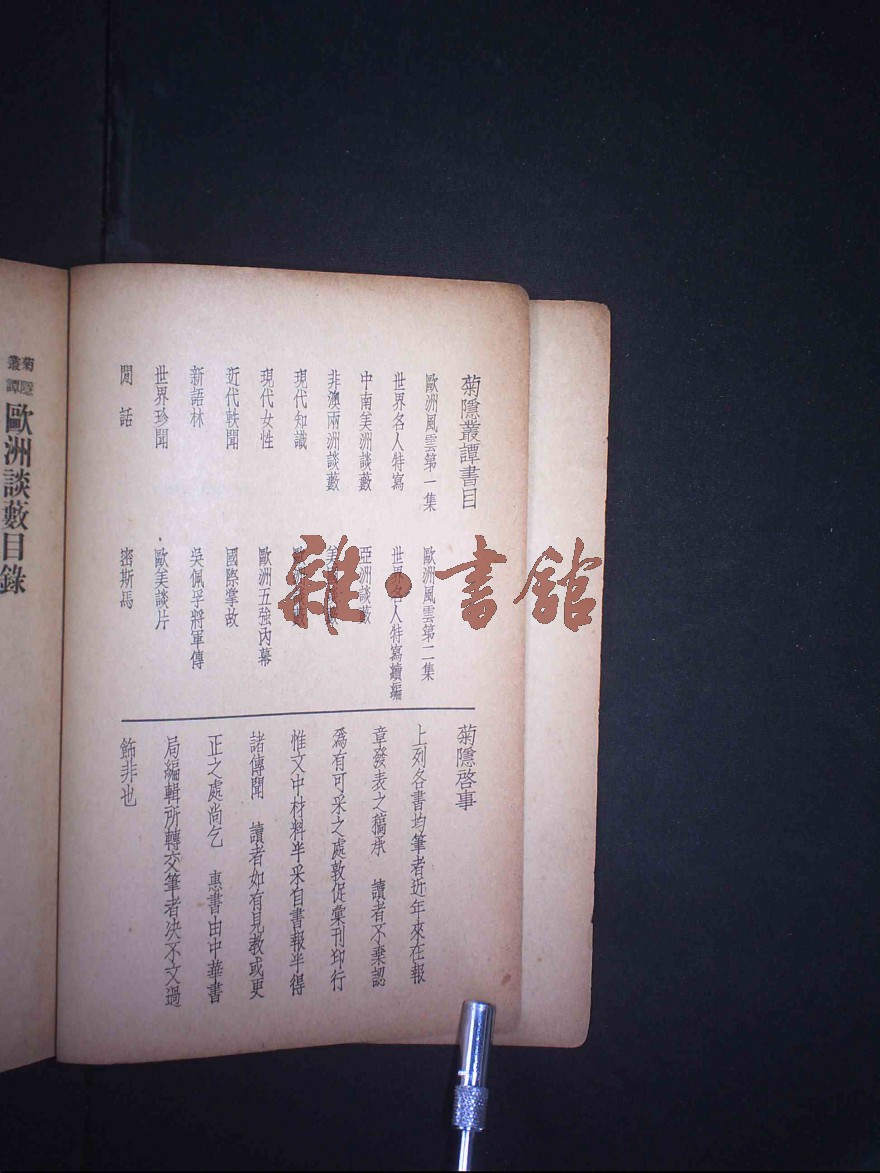 菊隱叢譚書目
歐洲風雲第一集 歐洲風雲第二集
世界名人特寫 世界名人特寫續編
中南美洲談藪 亞洲談藪
非澳兩洲談藪
現代知識
現代女性 歐洲五強內幕
近代軼聞 國際掌故
新語林 吳佩孚將軍傳
世界珍聞 歐美談片
閒話 密斯馬
菊隱啓事
上列各書均筆者近年來在報
章發表之稿承 讀者不棄認
爲有可采之處敦促彙刊印行
惟文中材料半采自書報半得
諸傳聞 讀者如有見教或更
正之處尚乞 惠書由中華書
局編輯所轉交筆者決不文過
飾非也
菊隱叢譚 歐洲談藪目錄
雜·書館